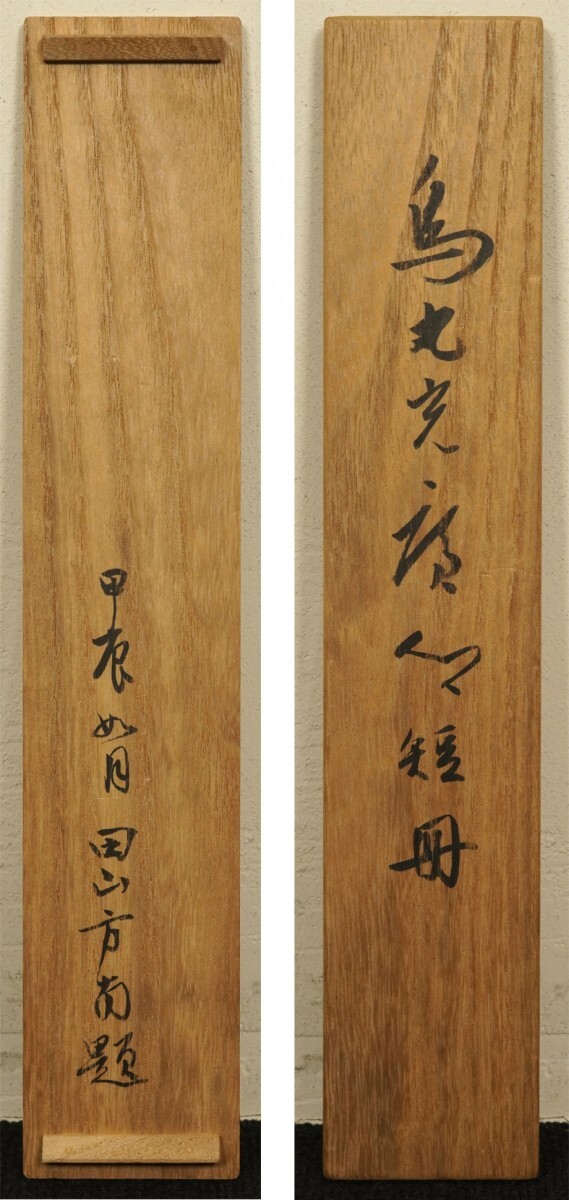 烏丸光廣卿短冊
甲辰如月 田山方南題